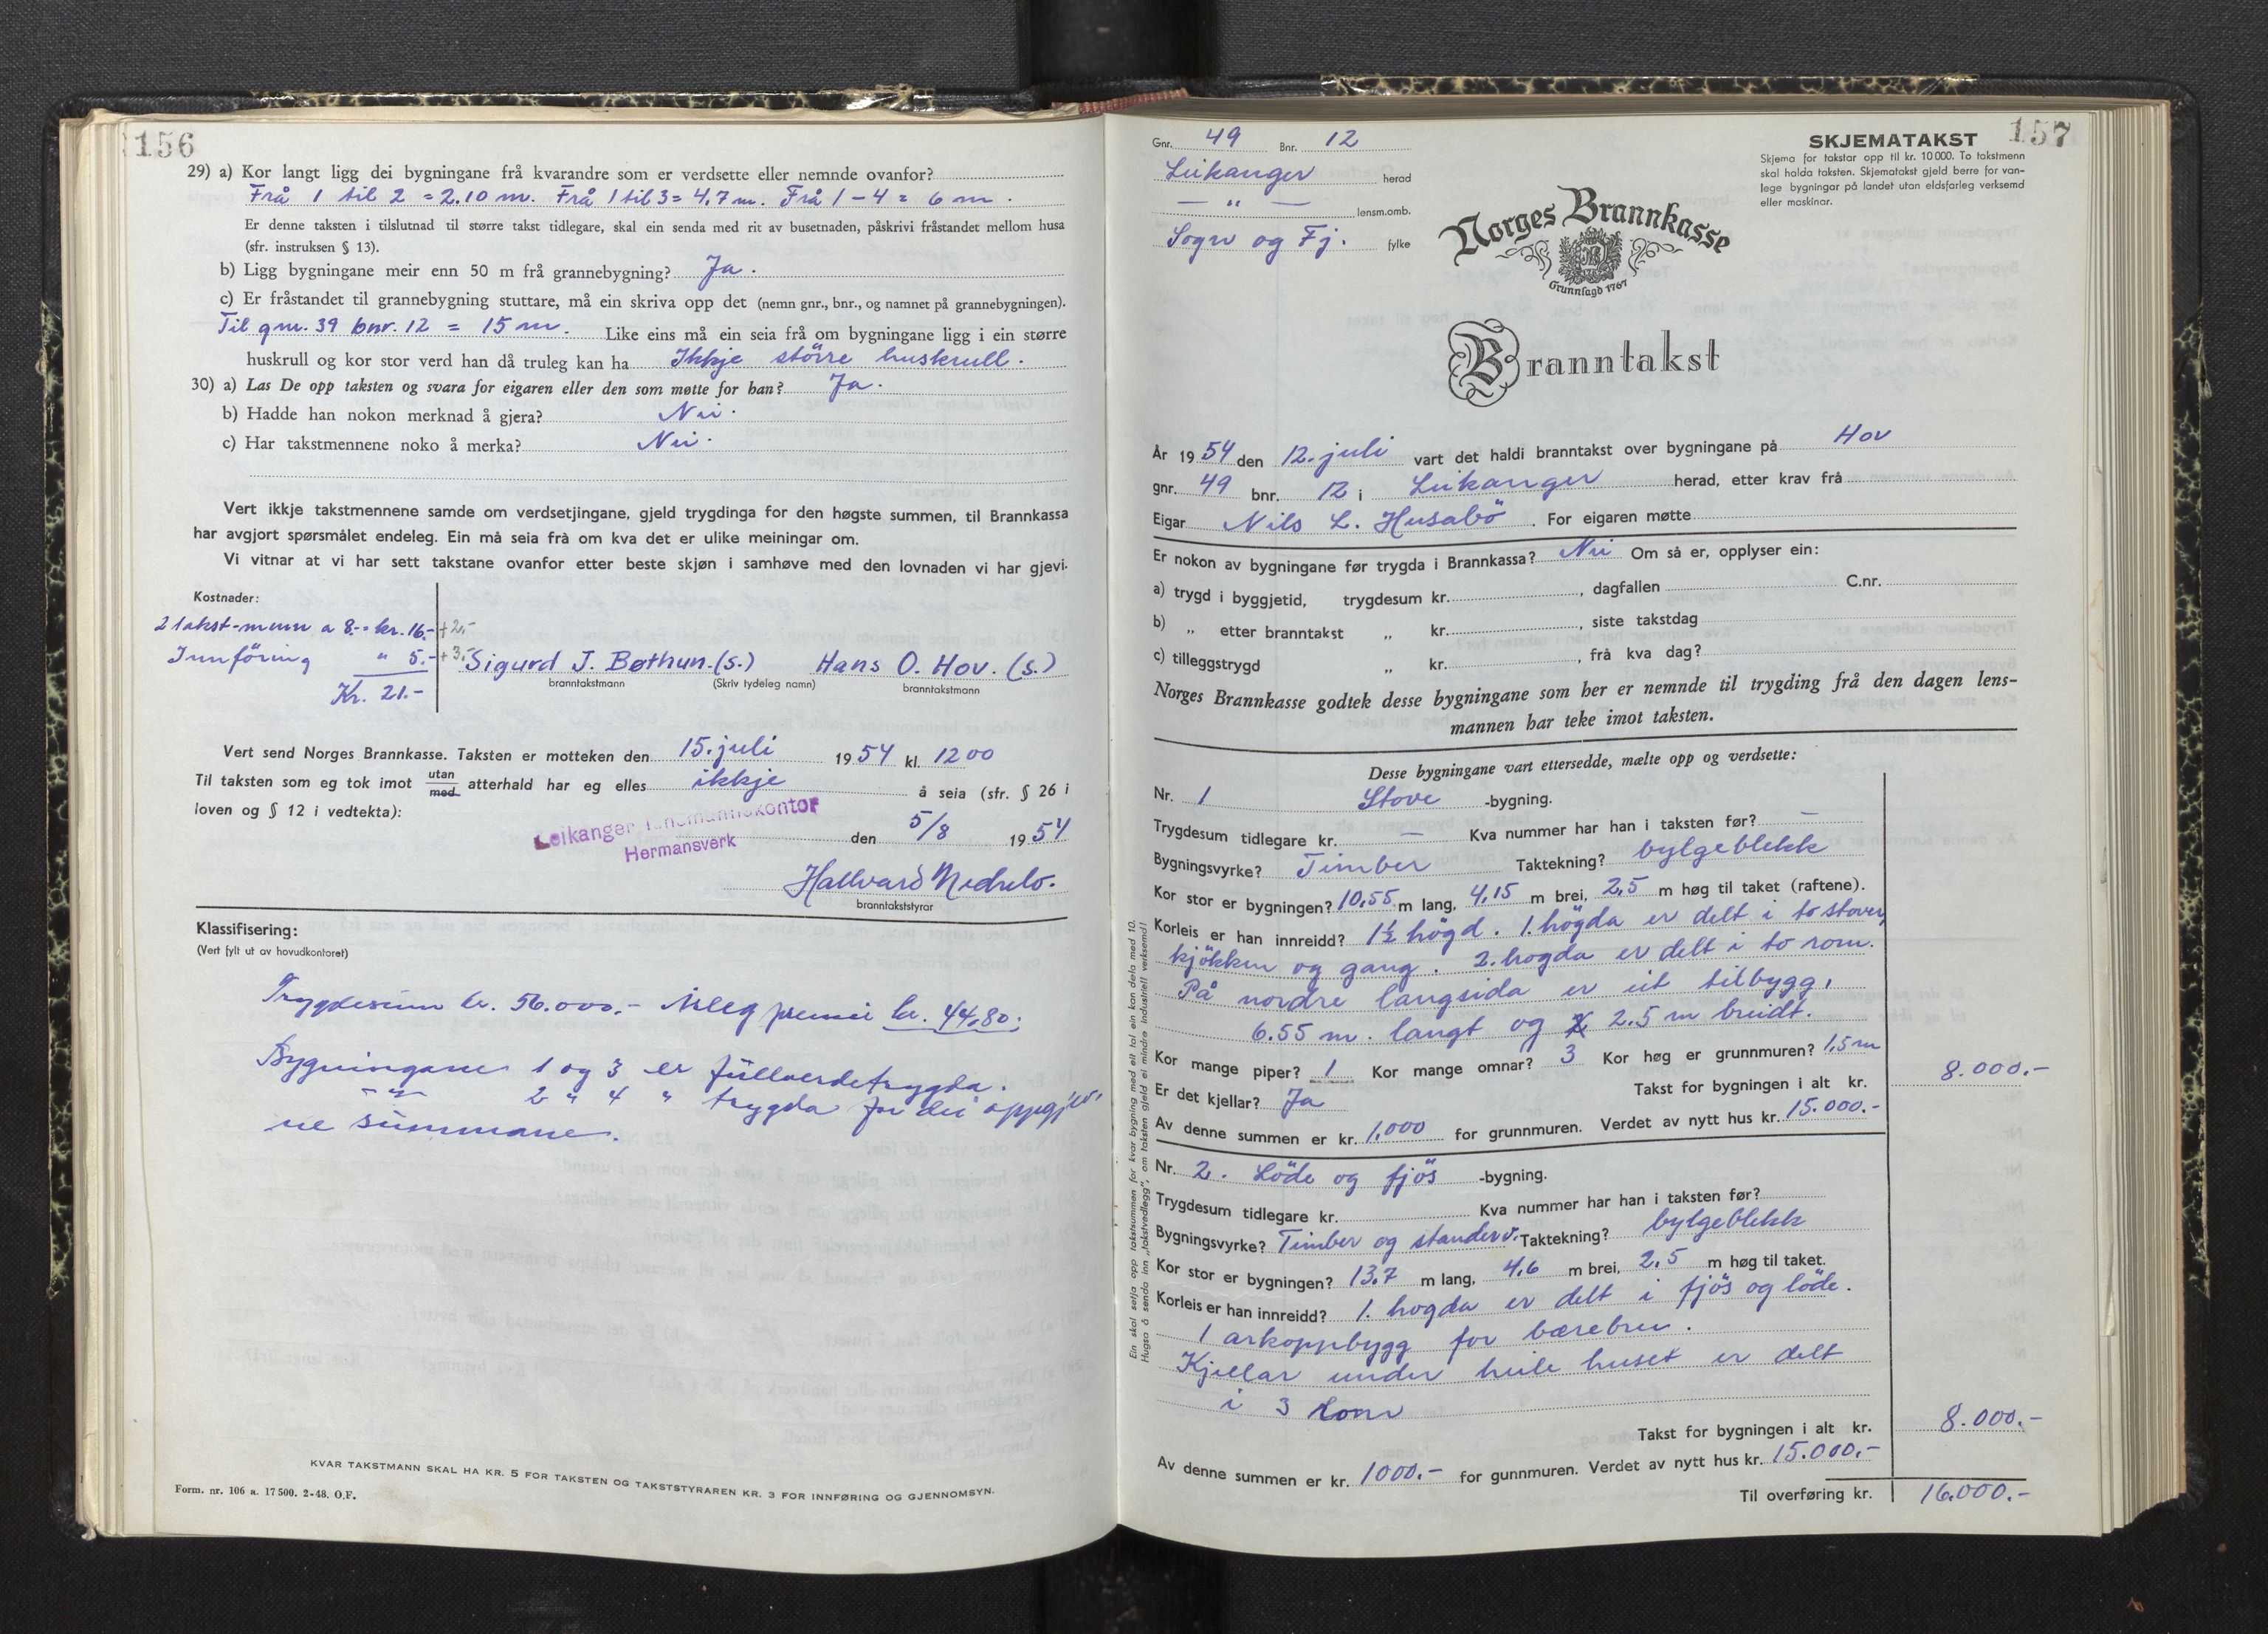 156
29) a) Kor langt ligg dei bygningane frå kvarandre som er verdsette eller nemnde ovanfor?
Frå 1 til 2 = 2.10 m. Frå 1 til 3 = 4,7 m. Frå 1 – 4 = 6 m.
Er denne taksten i tilslutnad til større takst tidlegare, skal ein senda med rit av busetnaden, påskrivi fråstandet mellom husa
(sfr. instruksen § 13).
b) Ligg bygningane meir enn 50 m frå grannebygning? Ja.
c) Er fråstandet til grannebygning stuttare, må ein skriva opp det (nemn gnr., bnr., og namnet på grannebygningen).
Til gnr. 39 bnr. 12 = 15 m. Like eins må ein seia frå om bygningane ligg i ein større
huskrull og kor stor verd han då truleg kan ha Ikkje större huskrull.
30) a) Las De opp taksten og svara for eigaren eller den som møtte for han? Ja.
b) Hadde han nokon merknad å gjera? Nei.
c) Har takstmennene noko å merka? Nei.
Vert ikkje takstmennene samde om verdsetjingane, gjeld trygdinga for den høgste summen, til Brannkassa
har avgjort spørsmålet endeleg. Ein må seia frå om kva det er ulike meiningar om.
Vi vitnar at vi har sett takstane ovanfor etter beste skjøn i samhøve med den lovnaden vi har gjevi.
Kostnader:
2 takst-menn a 8.- kr. 16.- +2,-
Innföring " 5.- +3,-
Kr. 21.-
Sigurd J. Bøthun. (s.) Hans O. Hov. (s.)
branntakstmann (Skriv tydeleg namn) branntakstmann
Vert send Norges Brannkasse. Taksten er motteken den 15. juli 1954 kl. 1200
Til taksten som eg tok imot utan med atterhald har eg elles ikkje å seia (sfr. § 26 i
loven og § 12 i vedtekta):
Leikanger lensmannskontor
Hermansverk
den 5/8 1954
Hallvard Nedrelo.
branntakststyrar
Klassifisering:
(Vert fylt ut av hovudkontoret)
Trygdesum kr. 56.000.- Årleg premie kr. 44,80.
Bygningane 1 og 3 er fullverdetrygda.
– " – 2 " 4 " trygda for dei oppgjev-
ne summane.
KVAR TAKSTMANN SKAL HA KR. 5 FOR TAKSTEN OG TAKSTSTYRAREN KR. 3 FOR INNFØRING OG GJENNOMSYN.
Form. nr. 106 a. 17 500. 2-48. O.F.
157
Gnr. 49 Bnr. 12
Leikanger herad
— " — lensm.omb.
Sogn og Fj. fylke
SKJEMATAKST
Skjema for takstar opp til kr. 10 000. To takstmenn
skal halda taksten. Skjematakst gjeld berre for van-
lege bygningar på landet utan eldsfarleg verksemd
eller maskinar.
Norges Brannkasse
Grunnlagd 1767
Branntakst
År 1954 den 12. juli vart det haldi branntakst over bygningane på Hov
gnr. 49 bnr. 12 i Leikanger herad, etter krav frå
Eigar Nils L. Husabö. For eigaren møtte
Er nokon av bygningane før trygda i Brannkassa? Nei Om så er, opplyser ein:
a) trygd i byggjetid, trygdesum kr. , dagfallen C.nr.
b) „ etter branntakst „ kr. , siste takstdag
c) tilleggstrygd „ kr. , frå kva dag?
Norges Brannkasse godtek desse bygningane som her er nemnde til trygding frå den dagen lens-
mannen har teke imot taksten.
Desse bygningane vart ettersedde, mælte opp og verdsette:
Nr. 1 Stove -bygning.
Trygdesum tidlegare kr. — Kva nummer har han i taksten før? —
Bygningsvyrke? Timber Taktekning? bylgeblekk
Kor stor er bygningen? 10,55 m lang, 4,15 m brei, 2,5 m høg til taket (raftene).
Korleis er han innreidd? 1½ högd. 1. högda er delt i to stover,
kjökken og gang. 2. hogda er delt i to rom.
På nordre langsida er eit tilbygg,
6.55 m. langt og 2.5 m breidt.
Kor mange piper? 1 Kor mange omnar? 3 Kor høg er grunnmuren? 1,5 m
Er det kjellar? Ja Takst for bygningen i alt kr. 8.000.-
Av denne summen er kr. 1,000 for grunnmuren. Verdet av nytt hus kr. 15.000.-
Nr. 2. Löde og fjös -bygning.
Trygdesum tidlegare kr. Kva nummer har han i taksten før?
Bygningsvyrke? Timber og standerv. Taktekning? bylgeblekk
Kor stor er bygningen? 13,7 m lang, 4,6 m brei, 2,5 m høg til taket.
Korleis er han innreidd? 1. hogda er delt i fjös og löde.
1 arkoppbygg for bærebru.
Kjellar under heile huset er delt
i 3 rom
Takst for bygningen i alt kr. 8.000.-
Av denne summen er kr. 1000.- for gunnmuren. Verdet av nytt hus kr. 15.000.-
Til overføring kr. 16.000.-
Ein skal setja opp takstsummen for kvar bygning med eit tal ein kan dela med 10.
Hugsa å senda inn „takstvedlegg", om taksten gjeld ei mindre industriell verksemd!